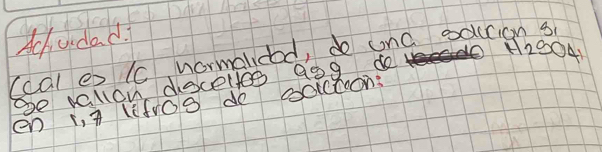 Actividad:
Cual es la normalidad, de una solución si
se hallan disueltos 958 g de H2SO4,
en 1,7 litros de solución: